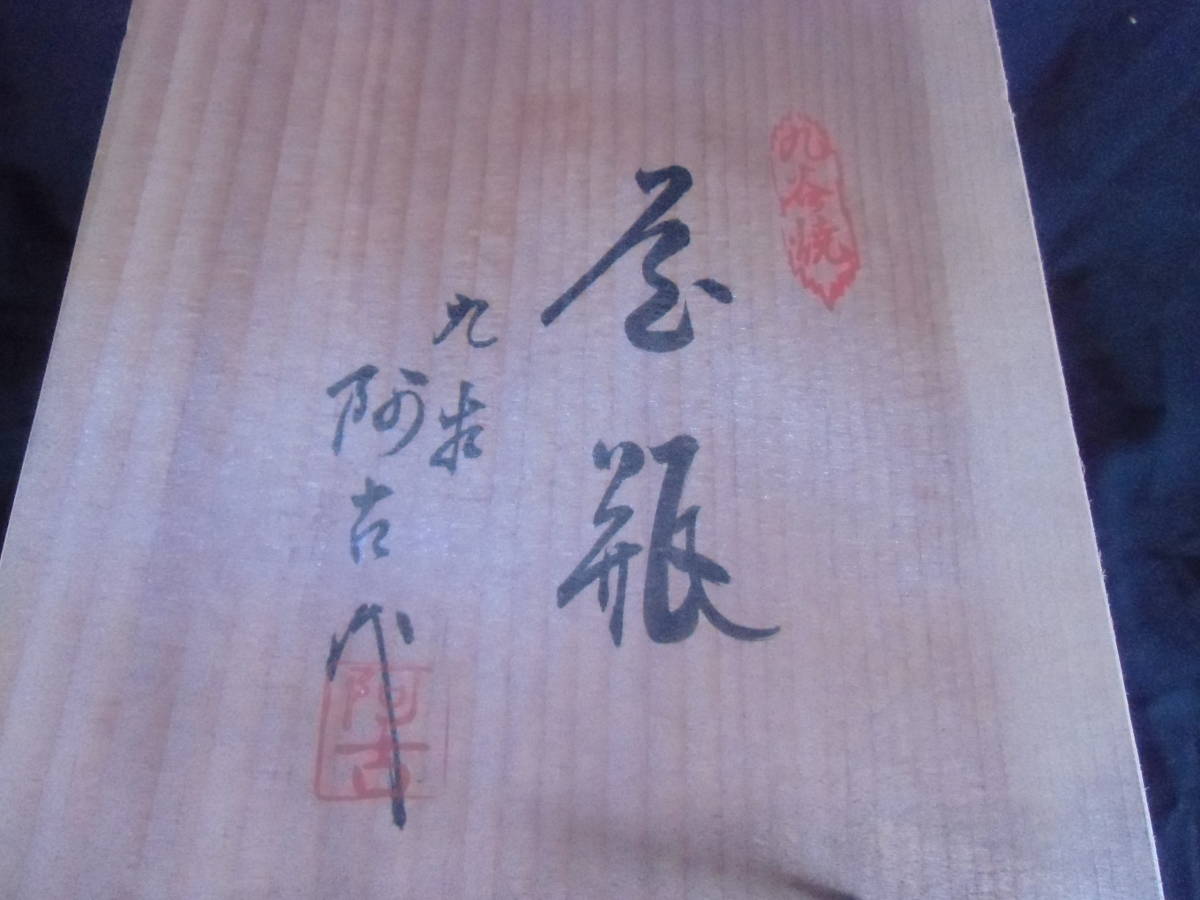 九谷焼
花瓶
九谷
阿古代
阿古